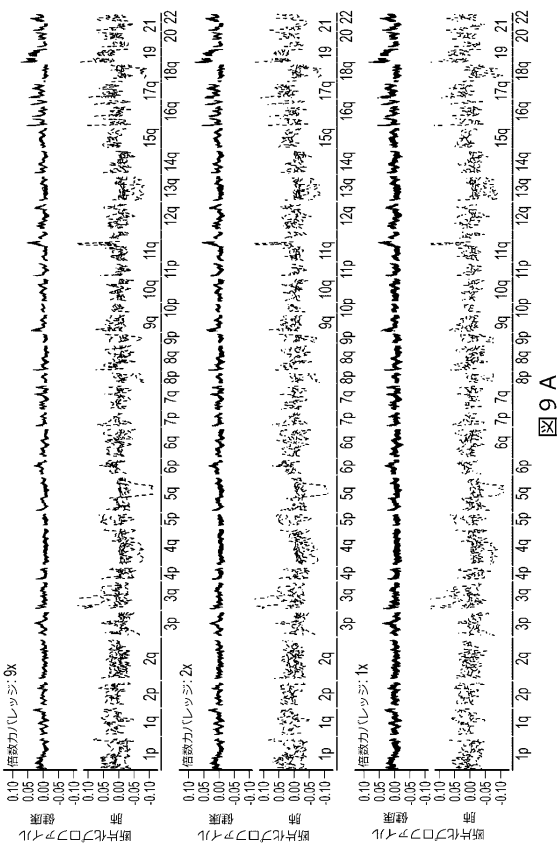 倍数カバレッジ: 9x
断片化プロファイル
健康
0.10
0.05
0.00
-0.05
-0.10
肺
0.10
0.05
0.00
-0.05
-0.10
1p 1q 2p 2q 3p 3q 4p 4q 5p 5q 6p 6q 7p 7q 8p 8q 9p 9q 10p 10q 11p 11q 12q 13q 14q 15q 16q 17q 18q 19 20 21 22
倍数カバレッジ: 2x
断片化プロファイル
健康
0.10
0.05
0.00
-0.05
-0.10
肺
0.10
0.05
0.00
-0.05
-0.10
1p 1q 2p 2q 3p 3q 4p 4q 5p 5q 6p 6q 7p 7q 8p 8q 9p 9q 10p 10q 11p 11q 12q 13q 14q 15q 16q 17q 18q 19 20 21 22
倍数カバレッジ: 1x
断片化プロファイル
健康
0.10
0.05
0.00
-0.05
-0.10
肺
0.10
0.05
0.00
-0.05
-0.10
1p 1q 2p 2q 3p 3q 4p 4q 5p 5q 6p 6q 7p 7q 8p 8q 9p 9q 10p 10q 11p 11q 12q 13q 14q 15q 16q 17q 18q 19 20 21 22
図9A